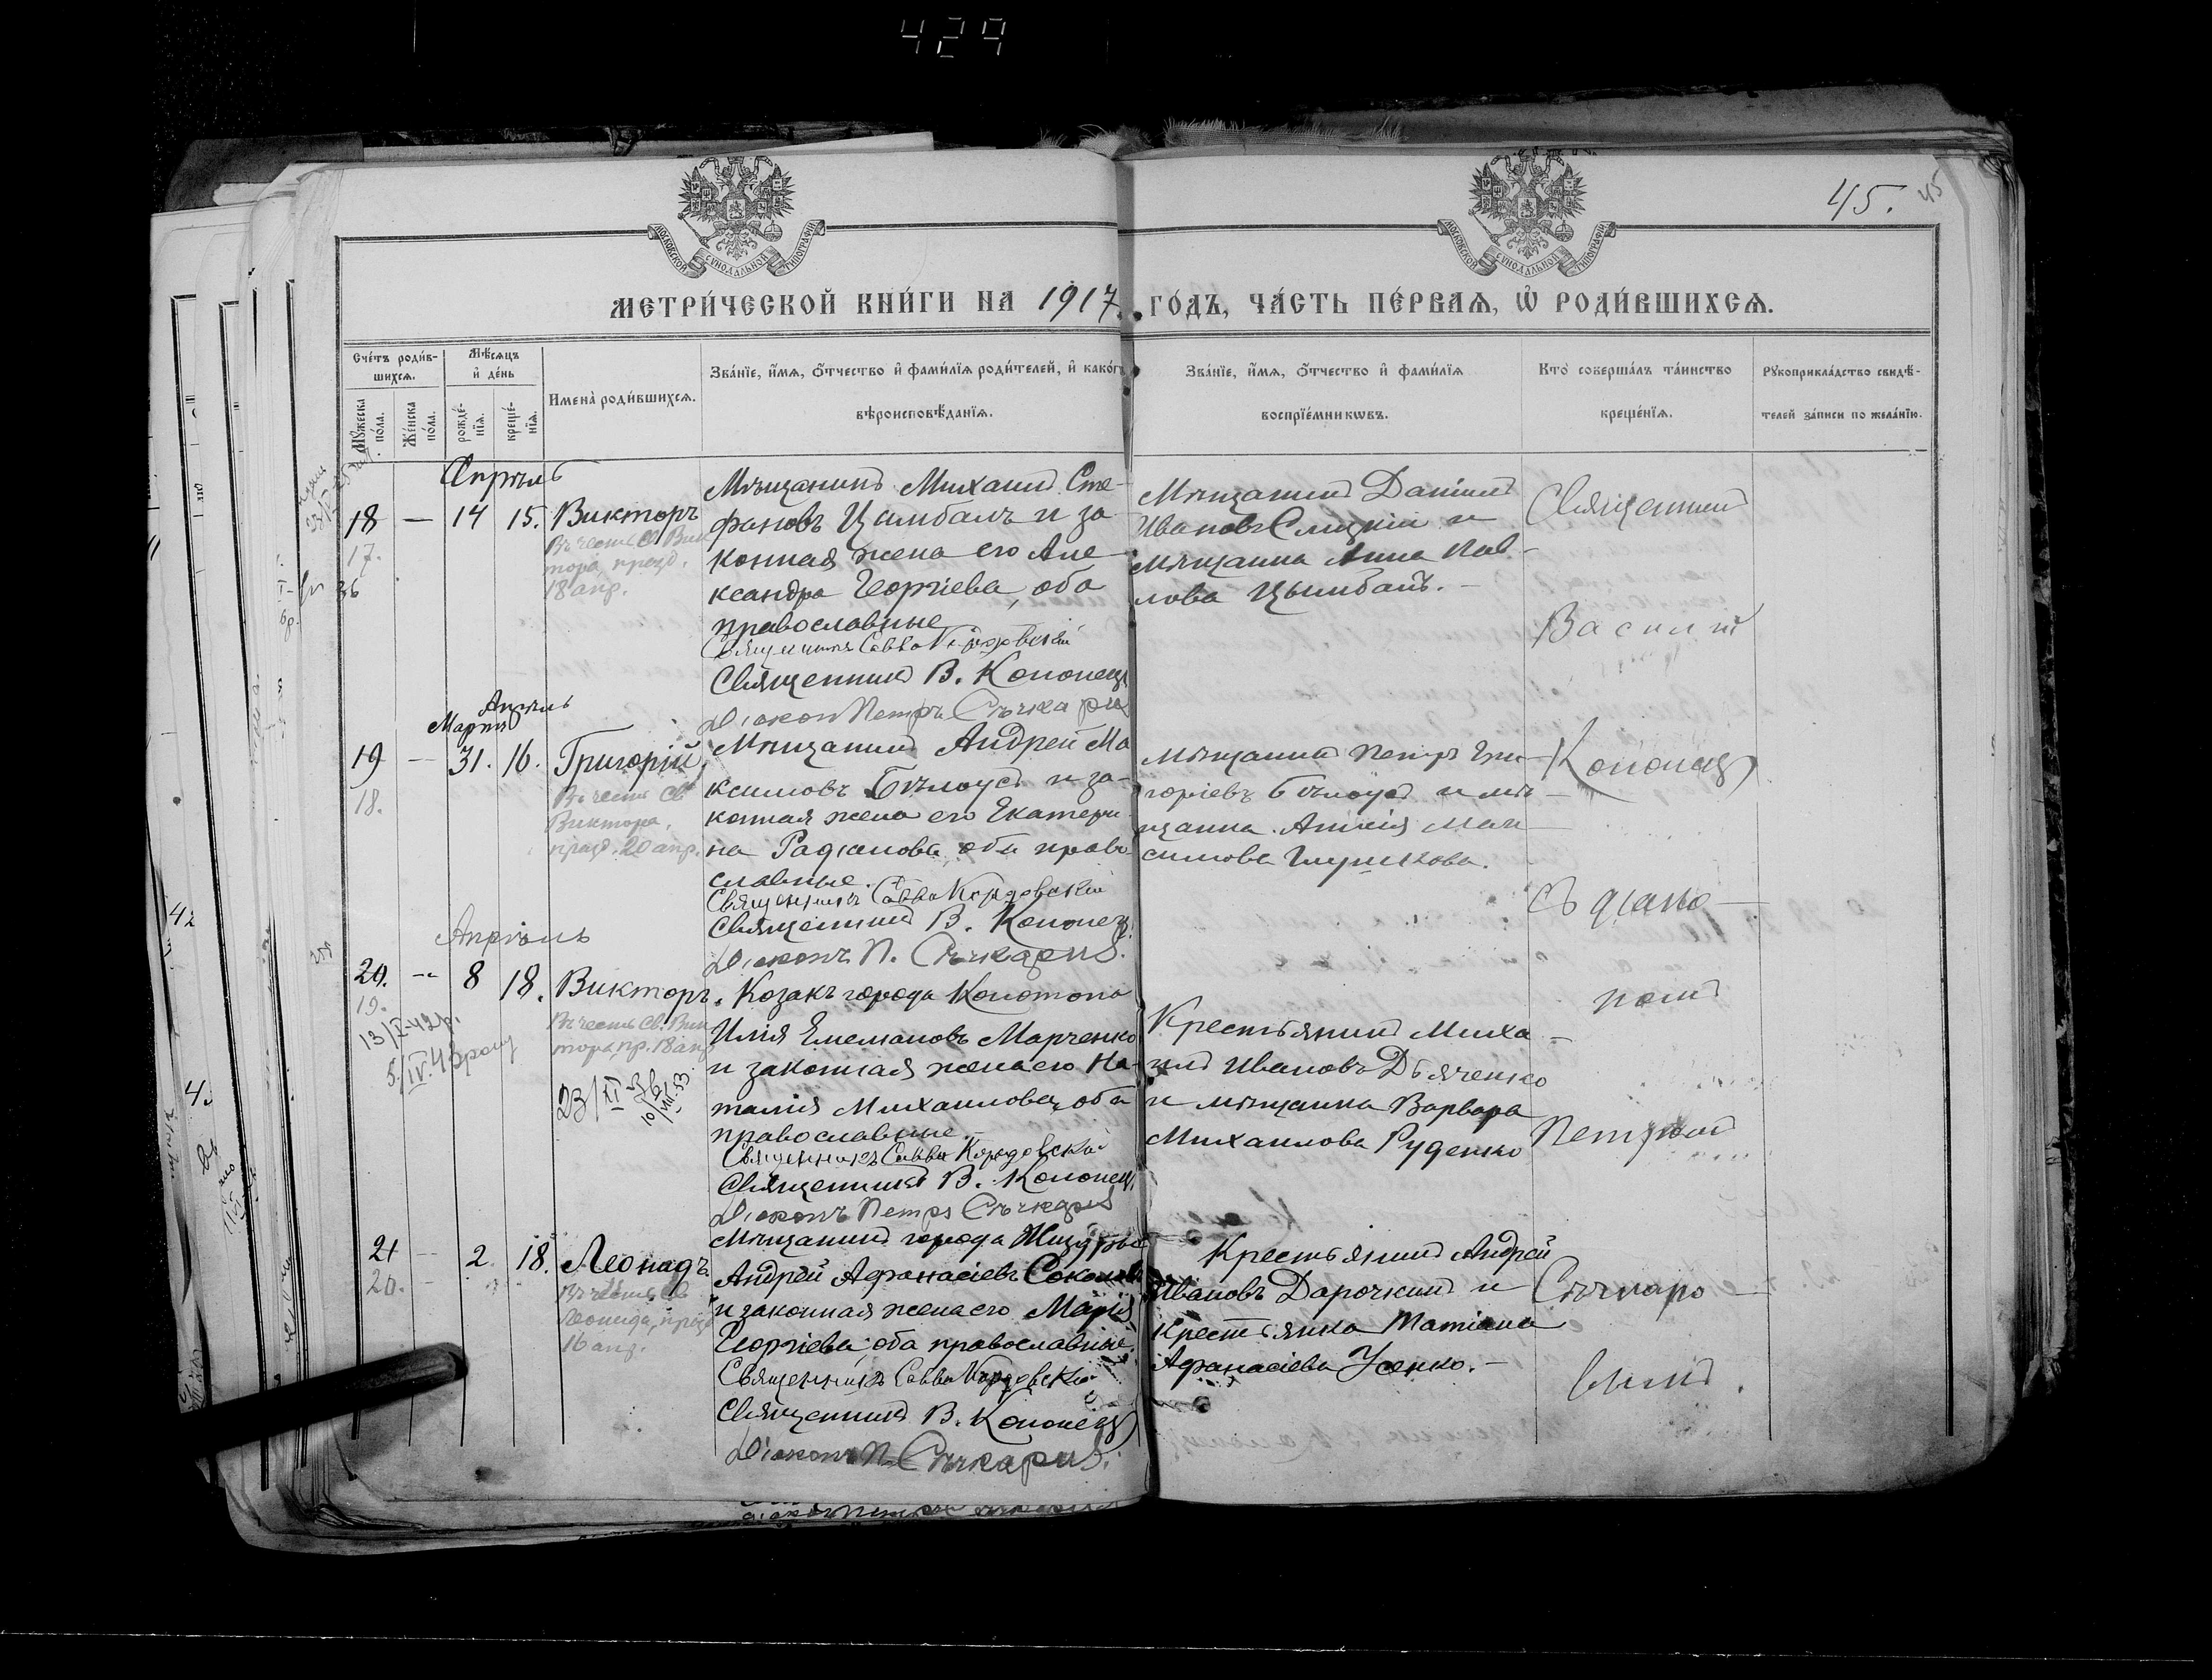 429
45.
45
МОСКОВСКОЙ СѴНОДАЛЬНОЙ ТИПОГРАФІИ
МОСКОВСКОЙ СѴНОДАЛЬНОЙ ТИПОГРАФІИ
МЕТРИ́ЧЕСКОЙ КНИ́ГИ НА 1917. ГО́ДЪ, ЧА́СТЬ ПЕ́РВАЯ, Ѽ РОДИ́ВШИХСЯ.
Сче́тъ роди́в-
шихся.
Мѣ́сяцъ
и҆ де́нь
Мꙋ́жеска по́ла.
Же́нска по́ла.
рожде́-нїя.
креще́-нїя.
Имена̀ роди́вшихся.
Зва́нїе, и҆́мя, ѻ҆́тчество и҆ фами́лїя роди́телей, и҆ како́гѡ
вѣроисповѣ́данїя.
Зва́нїе, и҆́мя, ѻ҆́тчество и҆ фами́лїя
воспрїе́мникѡвъ.
Кто̀ соверша́лъ та́инство
креще́нїя.
Рꙋкоприкла́дство свидѣ́-
телей за́писи по жела́нїю.
Апрѣль
18 — 14 15. Викторъ
17.
36
Въ честь св. Вик
тора, празд.
18 апр.
Мѣщанинъ Михаилъ Сте-
фановъ Цымбалъ и за
конная жена его Але-
ксандра Георгіева, оба
православные
Священникъ Савва
Священникъ В. Кононец
Діаконъ Петръ Сѣчкарив
Мѣщанинъ Даніилъ
Ивановъ Слицкій и
мѣщанка Анна Пав-
лова Цымбалъ. —
Священник
Василій
Апрѣль
Мартъ
19 — 31. 16. Григорій
18.
Въ честь св.
Виктора,
празд. 20 апр.
Мѣщанинъ Андрей Ма
ксимовъ Бѣлоусъ и за-
конная жена его Екатери-
на Радіонова, оба право-
славные.
Священникъ Савва
Священникъ В. Кононец.
Діаконъ П. Сѣчкарив.
Мѣщанинъ Петръ Гри-
горіевъ Бѣлоусъ и мѣ-
щанка Анисія Мак-
симова Глушкова.
Кононец
съ діако-
номъ
Апрѣль
20. — 8 18. Викторъ.
19.
13/X-42р.
5/IV.43
Въ честь св. Вик
тора, пр. 18 апр
23/XI-36
10/VIII.53.
Козакъ города Конотопа
Илія Емелиановъ Марченко
и законная жена его На-
талія Михаилова, оба
православные. —
Священникъ Савва
Священникъ В. Кононец.
Діаконъ Петръ Сѣчкарив
Крестьянинъ Миха-
илъ Ивановъ Дьяченко
и мѣщанка Варвара
Михаилова Руденко
Петромъ
21 — 2. 18. Леонидъ.
20. —
Въ честь св
Леонида, празд
16 апр.
Мѣщанинъ города
Андрей Афанасіевъ Соколов
и законная жена его Марія
Георгіева, оба православные.
Священникъ Савва
Священникъ В. Кононец
Діаконъ П. Сѣчкарив.
Крестьянинъ Андрей
Ивановъ Дарочкинъ и
крестьянка Татіана
Афанасіева Усенко. —
Сѣчкаре-
вымъ.